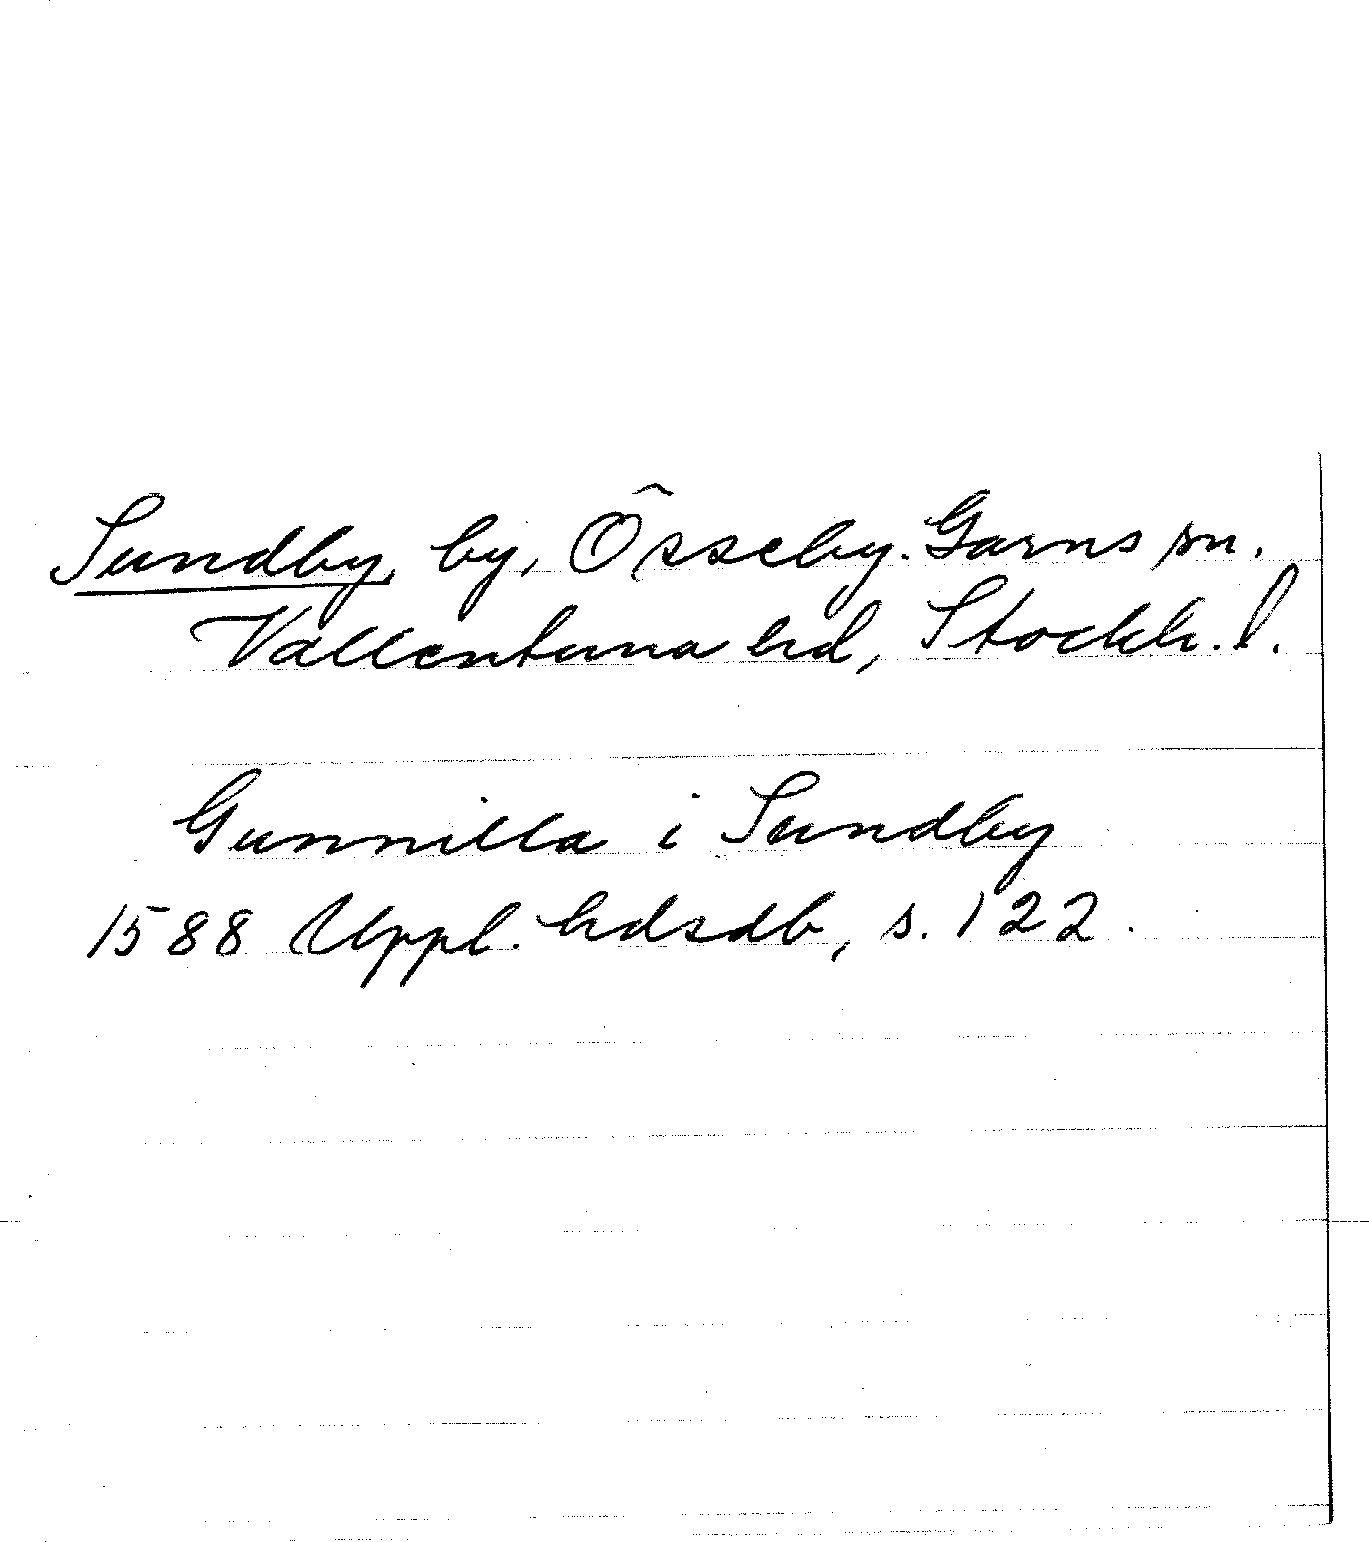 Sundby, by, Össeby-Garns sn.
Vallentuna hd, Stockh. l.
Gunnilla i Sundby
1588 Uppl. hdsdb, s. 122.